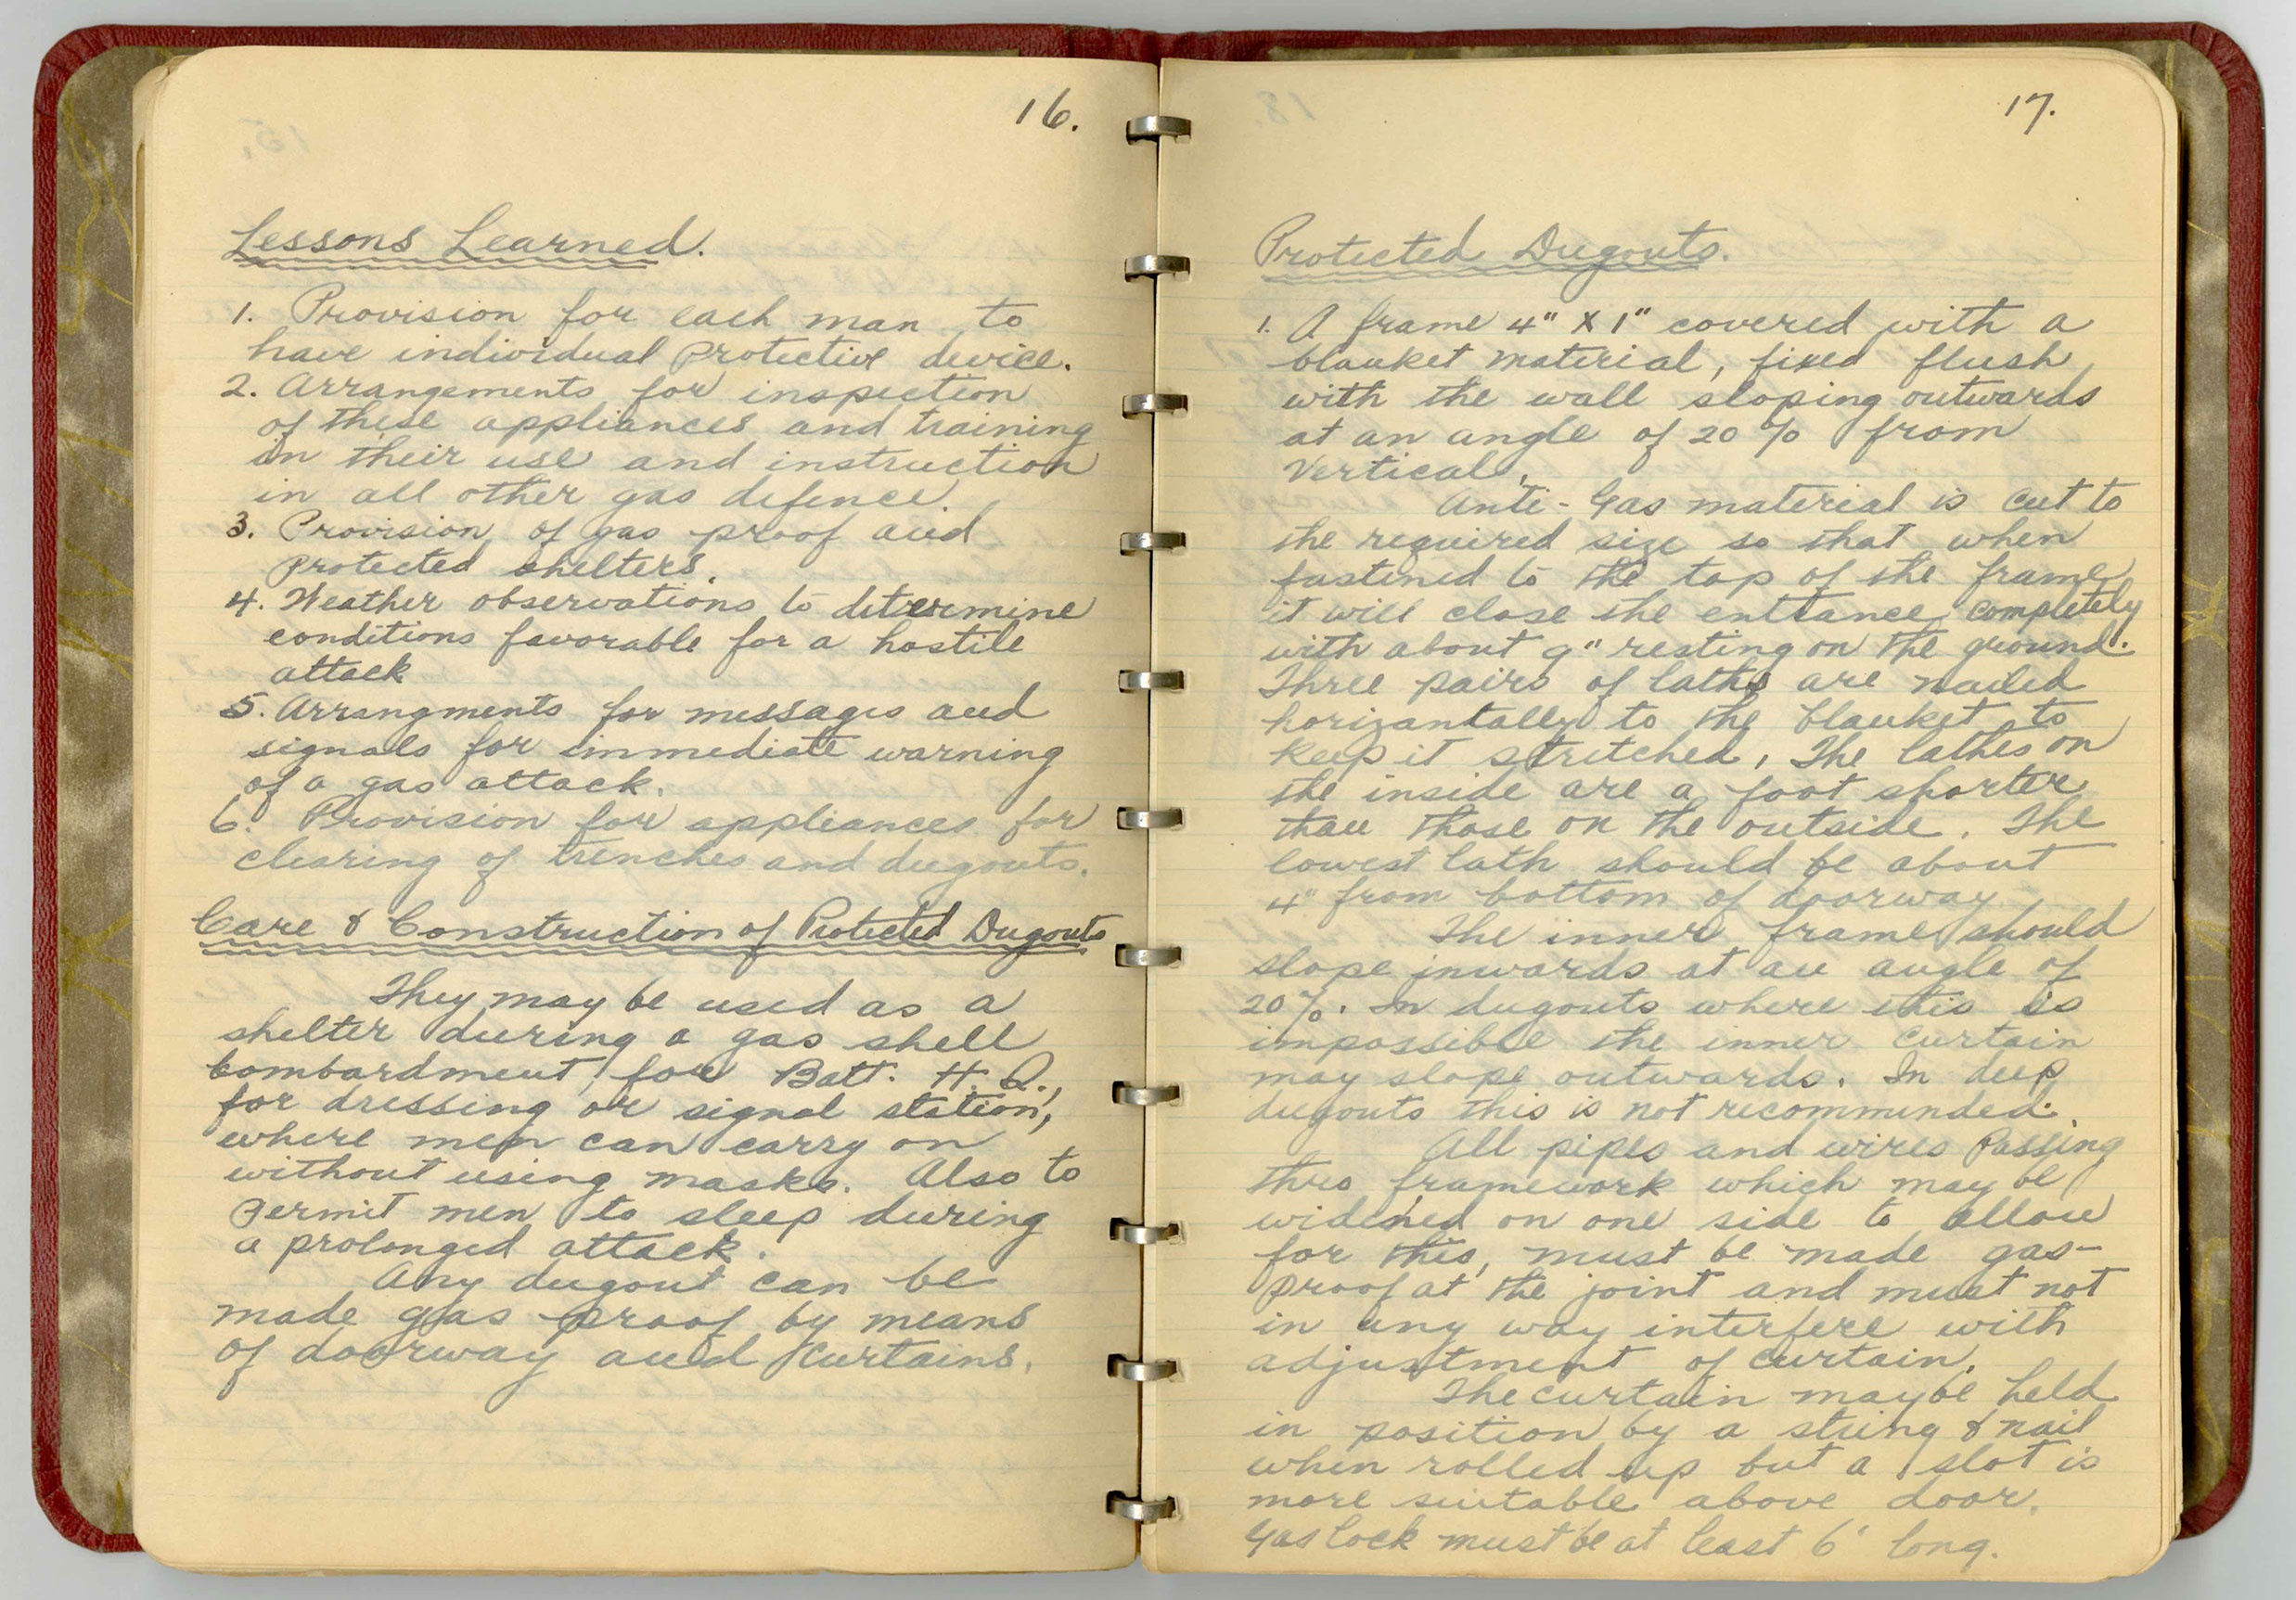 16.
Lessons Learned.
1. Provision for each man to
have individual protective device.
2. Arrangements for inspection
of these appliances and training
in their use and instruction
in all other gas defence.
3. Provision of gas proof and
protected shelters.
4. Weather observations to determine
conditions favorable for a hostile
attack
5. Arrangments for messages and
signals for immediate warning
of a gas attack.
6. Provision for appliances for
clearing of trenches and dugouts.
Care & Construction of Protected Dugouts
They may be used as a
shelter during a gas shell
bombardment, for Batt. H.Q.,
for dressing or signal station,
where men can carry on
without using masks. Also to
permit men to sleep during
a prolonged attack.
Any dugout can be
made gas proof by means
of doorway and curtains.
17.
Protected Dugouts.
1. A frame 4" X 1" covered with a
blanket material, fixed flush
with the wall sloping outwards
at an angle of 20% from
Vertical.
Anti-Gas material is cut to
the required size so that when
fastened to the top of the frame
it will close the enttance completely
with about 9" resting on the ground.
Three pairs of laths are nailed
horizantally to the blanket to
keep it stretched. The lathes on
the inside are a foot shorter
than those on the outside. The
lowest lath should be about
4" from bottom of doorway.
The inner frame should
slope inwards at an angle of
20%. In dugouts where this is
impossible the inner curtain
may slope outwards. In deep
dugouts this is not recommended.
All pipes and wires passing
thro framework which may be
widened on one side to allow
for this, must be made gas-
proof at the joint and must not
in any way interfere with
adjustment of curtain.
The curtain may be held
in position by a string & nail
when rolled up but a slot is
more suitable above door.
Gas lock must be at least 6' long.